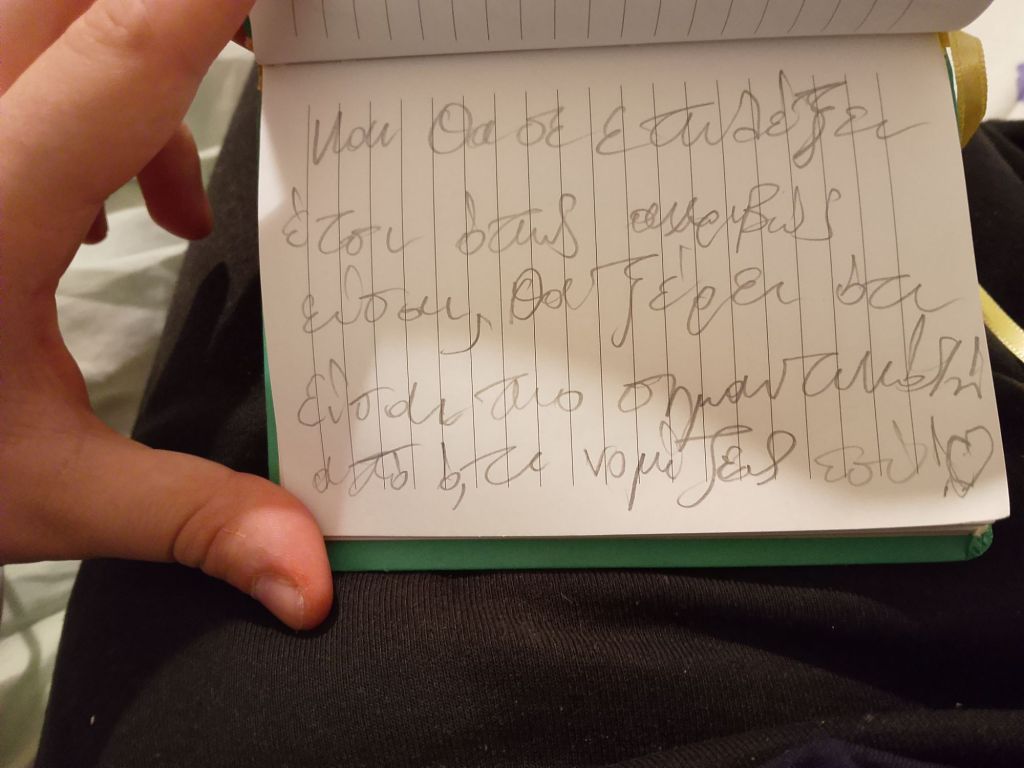 και θα σε επιλέξει
έτσι όπως ακριβώς
είσαι, θα ξέρει ότι
είσαι πιο σημαντική
από ό,τι νομίζεις εσύ!♡